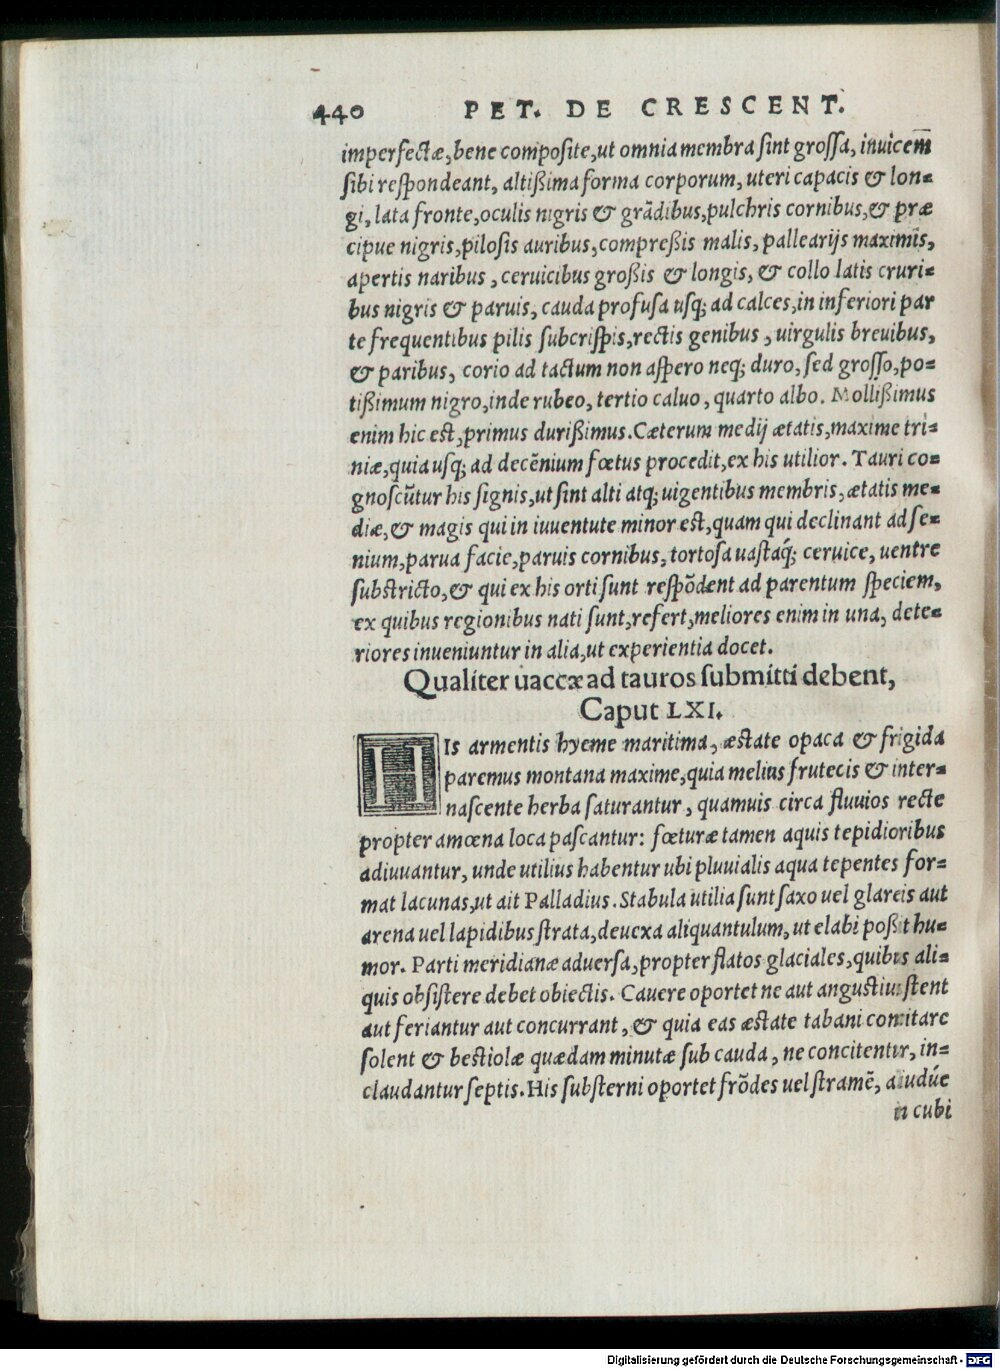 440 PET. DE CRESCENT.
imperfectæ, bene composite, ut omnia membra sint grossa, inuicem̄
sibi respondeant, altißima forma corporum, uteri capacis & lon-
gi, lata fronte, oculis nigris & grādibus, pulchris cornibus, & præ
cipue nigris, pilosis auribus, compreßis malis, pallearijs maximis,
apertis naribus, ceruicibus großis & longis, & collo latis cruri-
bus nigris & paruis, cauda profusa usq; ad calces, in inferiori par
te frequentibus pilis subcrispis, rectis genibus, uirgulis breuibus,
& paribus, corio ad tactum non aspero neq; duro, sed grosso, po-
tißimum nigro, inde rubeo, tertio caluo, quarto albo. Mollißimus
enim hic est, primus durißimus. Cæterum medij ætatis, maxime tri-
niæ, quia usq; ad decēnium fœtus procedit, ex his utilior. Tauri co-
gnoscūtur his signis, ut sint alti atq; uigentibus membris, ætatis me-
diæ, & magis qui in iuuentute minor est, quam qui declinant ad se-
nium, parua facie, paruis cornibus, tortosa uastaq́; ceruice, uentre
substricto, & qui ex his orti sunt respōdent ad parentum speciem,
ex quibus regionibus nati sunt, refert, meliores enim in una, dete-
riores inueniuntur in alia, ut experientia docet.
Qualiter uaccæ ad tauros submitti debent,
Caput LXI.
HIs armentis hyeme maritima, æstate opaca & frigida
paremus montana maxime, quia melius frutecis & inter-
nascente herba saturantur, quamuis circa fluuios recte
propter amœna loca pascantur: fœturæ tamen aquis tepidioribus
adiuuantur, unde utilius habentur ubi pluuialis aqua tepentes for-
mat lacunas, ut ait Palladius. Stabula utilia sunt saxo uel glareis aut
arena uel lapidibus strata, deuexa aliquantulum, ut elabi poßit hu-
mor. Parti meridianæ aduersa, propter flatos glaciales, quibus ali-
quis obsistere debet obiectis. Cauere oportet ne aut angustius stent
aut feriantur aut concurrant, & quia eas æstate tabani concitare
solent & bestiolæ quædam minutæ sub cauda, ne concitentur, in-
claudantur septis. His substerni oportet frōdes uel stramē, aliudúe
in cubi
Digitalisierung gefördert durch die Deutsche Forschungsgemeinschaft - DFG